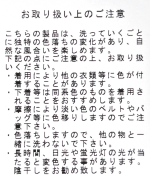 お取り扱い上のご注意
こちらの製品は、洗っていくごと
に独特の色落ちの変化があり、自
然な風合いを楽しめます。
下記の点にご注意の上、お取り扱
いください。
・着用により他の衣類等に色が付
着することがあります。
・下着等は同系色のものを着用さ
れることをおすすめします。
・摩擦により淡色のベルトやバ
ッグ等に色移りしますのでご注
意下さい。
・色落ちしますので、他の物と一
緒に洗わないで下さい。
・長時間、日光や蛍光灯の光が当
たると変色する事があります。
陰干しをお勧め致します。